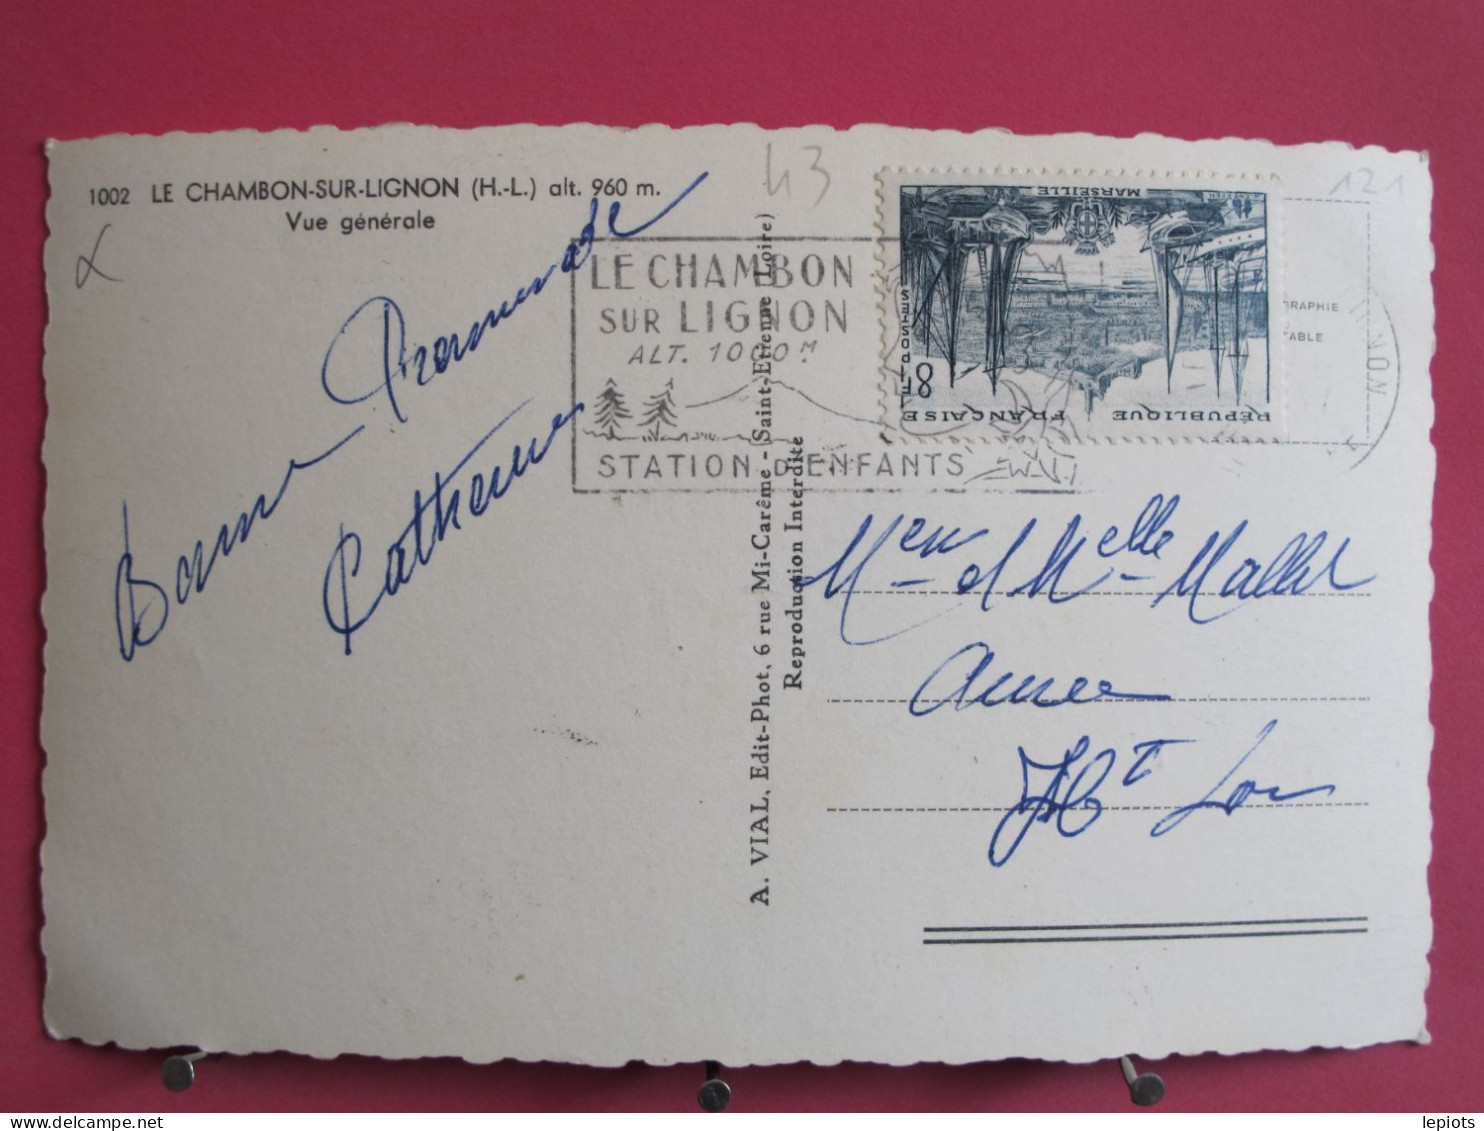 1002 LE CHAMBON-SUR-LIGNON (H.-L.) alt. 960 m.
Vue générale
43
121
Bonne Promenade
Catherine
LE CHAMBON
SUR LIGNON
ALT. 1000 M
STATION D'ENFANTS
A. VIAL, Edit-Phot, 6 rue Mi-Carême - Saint-Etienne (Loire)
Reproduction Interdite
MARSEILLE
8F
POSTES
RÉPUBLIQUE FRANÇAISE
OGRAPHIE
TABLE
GNON
Mlle Mallet
Hte Loire
lepiots